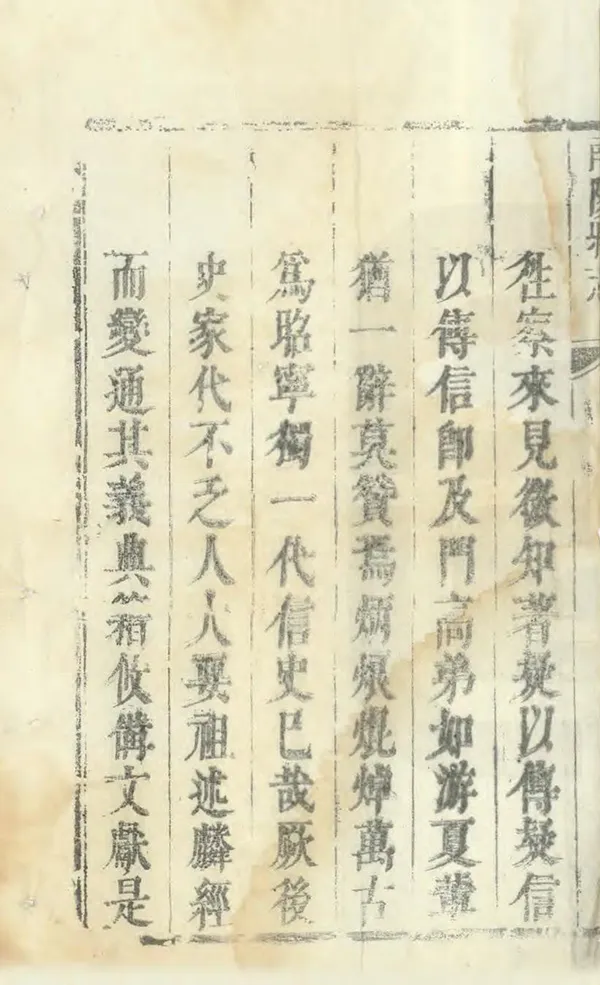 往察來見微知著疑以傳疑信
以傳信即及門高弟如游夏輩
猶一辭莫贊焉炳烺焜焯萬古
爲昭寧獨一代信史已哉厥後
史家代不乏人人要祖述麟經
而變通其義典籍攸備文獻是